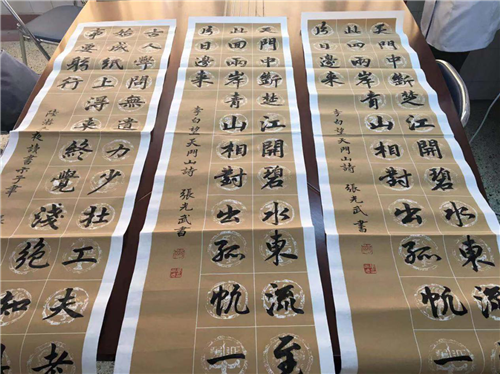 天門中斷楚江開碧水東流
此回兩岸青山相對出孤帆一
片日邊來
李白望天門山詩 張光武書
天門中斷楚江開碧水東流至
此回兩岸青山相對出孤帆一
片日邊來
李白望天門山詩 張光武書
古人學問無遺力少壯工夫老
始成紙上得來終覺淺絕知
事要躬行
陸游冬夜讀書示子聿